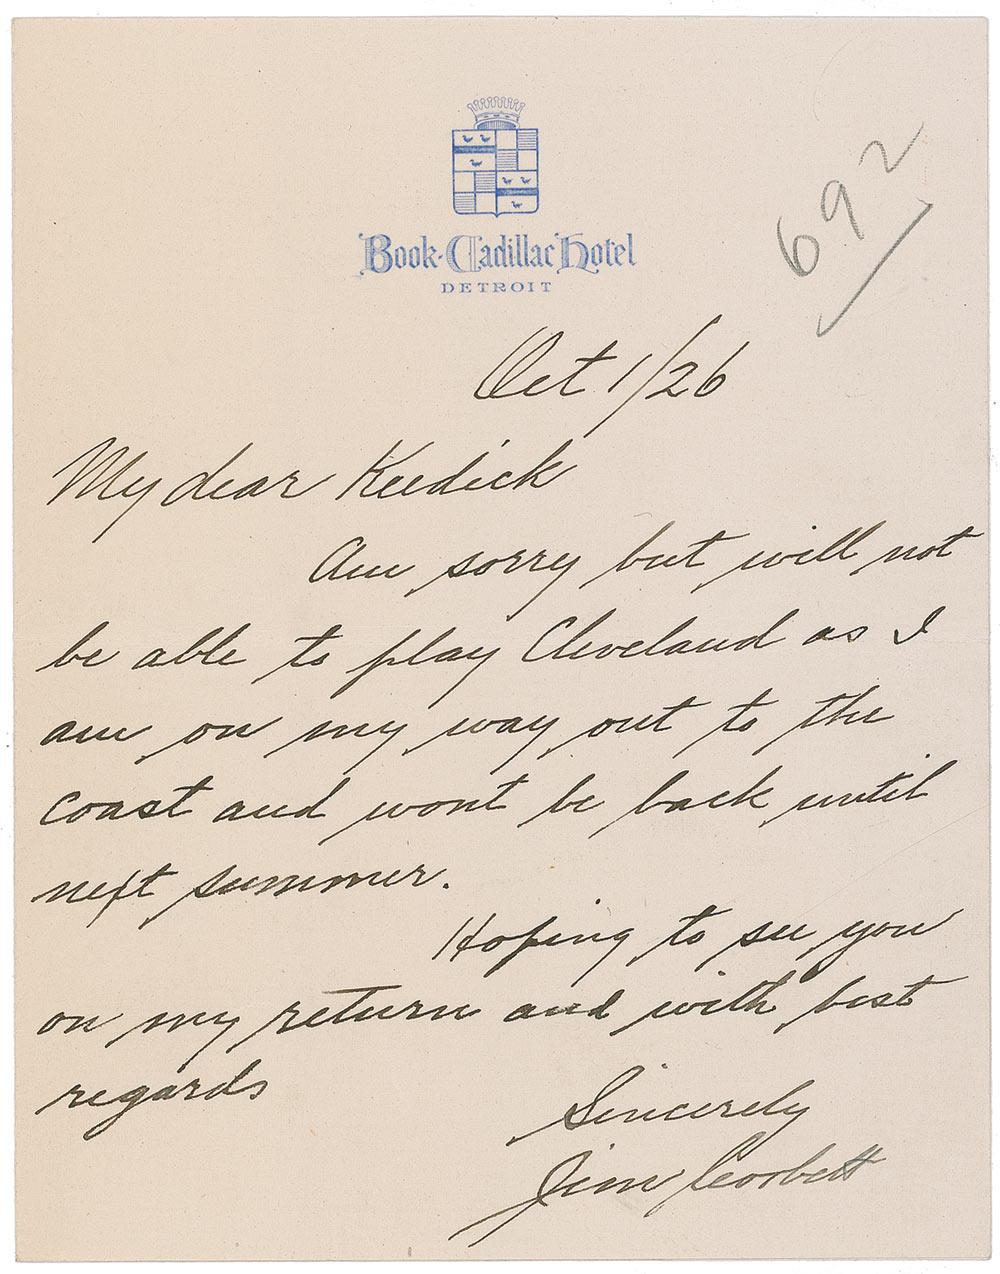 Book-Cadillac Hotel
DETROIT
692
Oct 1/26
My dear Keedick
Am sorry but will not
be able to play Cleveland as I
am on my way out to the
coast and wont be back until
next summer.
Hoping to see you
on my return and with best
regards
Sincerely
Jim Corbett